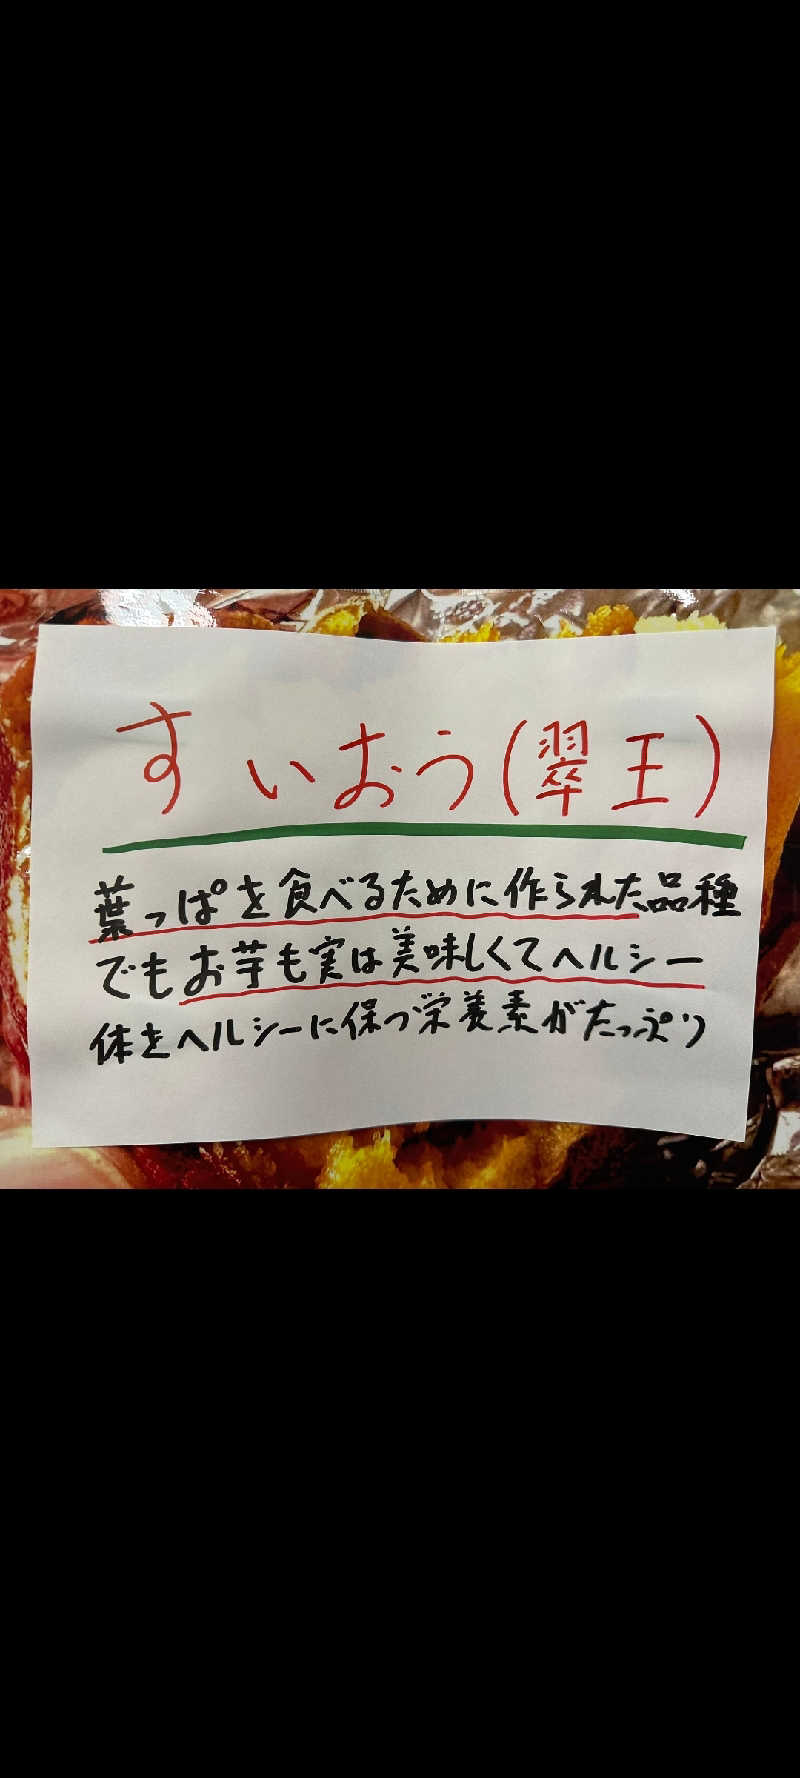 すいおう(翠王)
葉っぱを食べるために作られた品種
でもお芋も実は美味しくてヘルシー
体をヘルシーに保つ栄養素がたっぷり